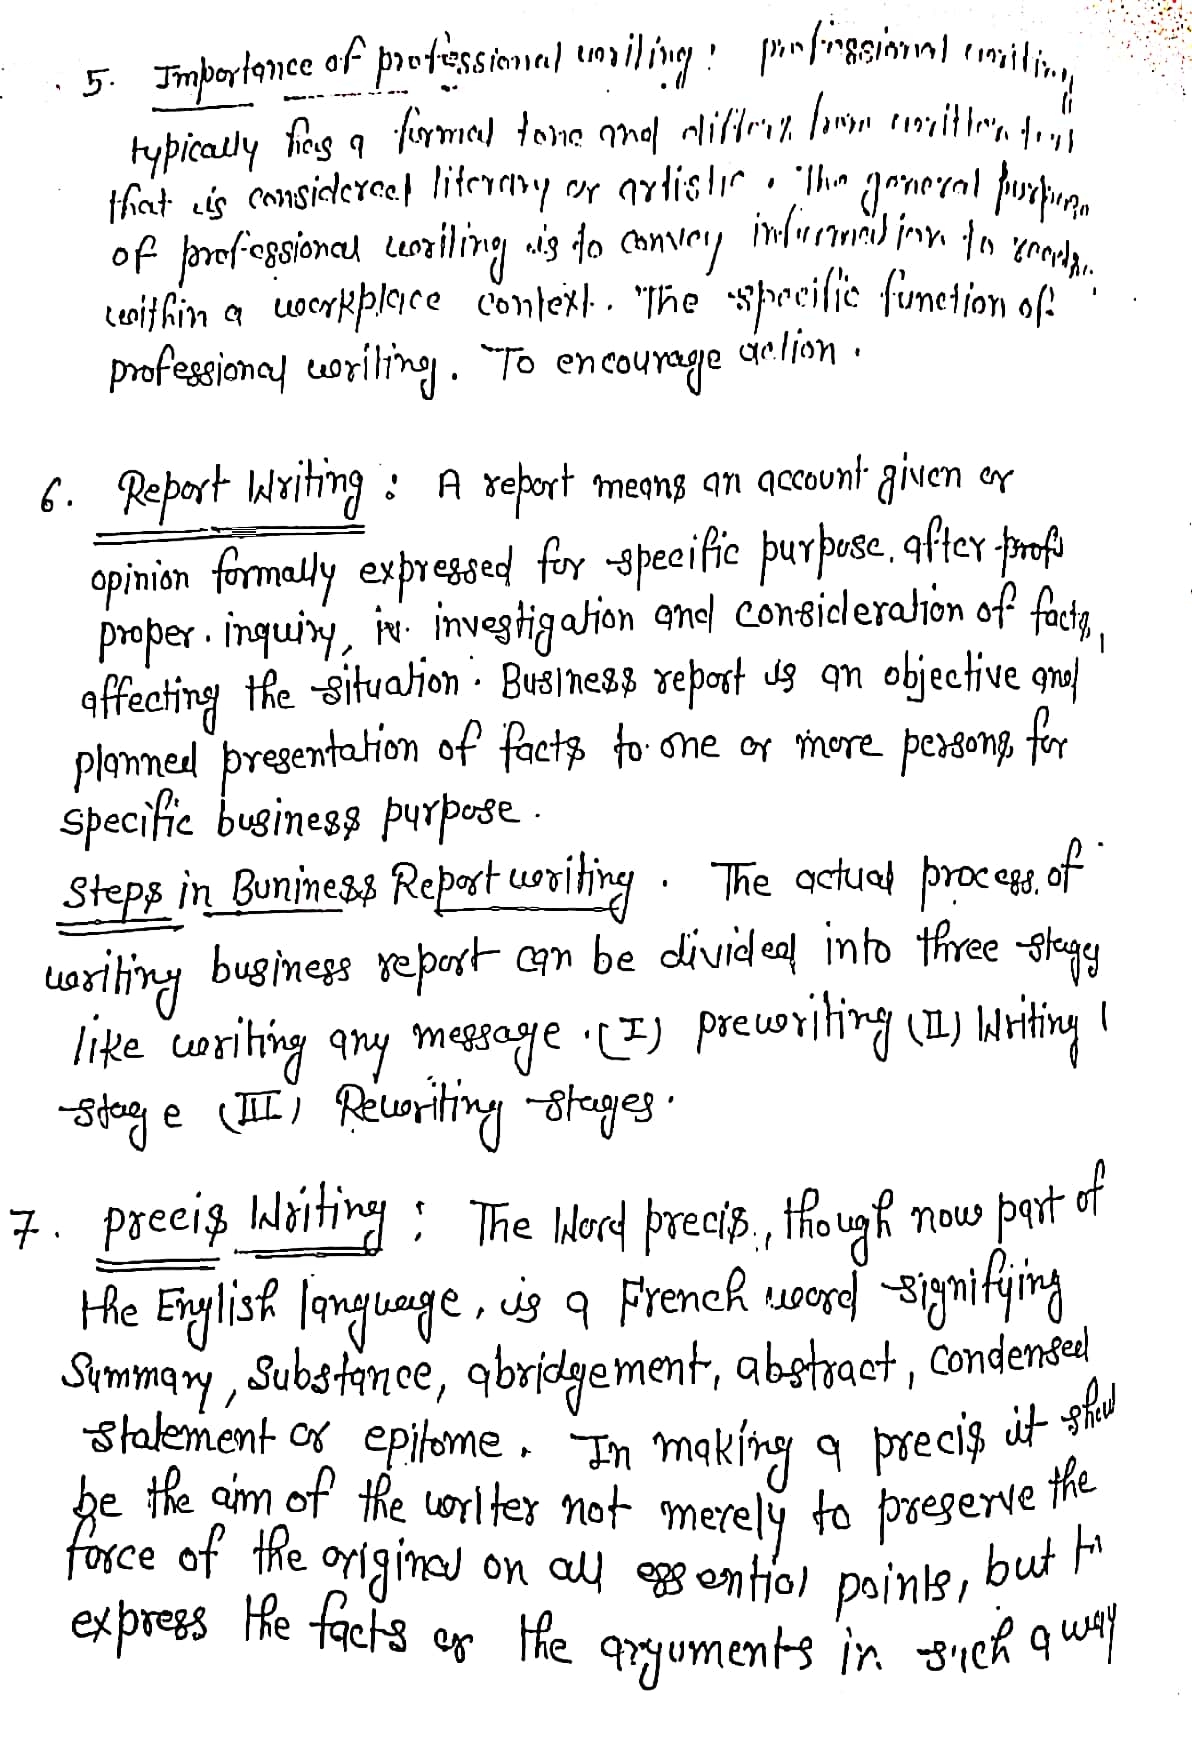 5. Importance of professional writing: professional writing
typically has a formal tone and differs from written text
that is considered literary or artistic. The general purpose
of professional writing is to convey information to
within a workplace context. The specific function of
professional writing. To encourage action.
6. Report Writing: A report means an account given or
opinion formally expressed for specific purpose, after
proper. inquiry, investigation and consideration of facts,
affecting the situation. Business report is an objective and
planned presentation of facts to one or more persons, for
specific business purpose.
Steps in Buniness Report writing. The actual process of
writing business report can be divided into three
like writing any message. (I) prewriting (II) Writing
stage (III) Rewriting stages.
7. precis Writing: The Word precis, though now part of
the English language, is a French word signifying
Summary, Substance, abridgement, abstract, condensed
statement or epitome. In making a precis it
be the aim of the writer not merely to preserve the
force of the original on all essential points, but
express the facts or the arguments in such a way